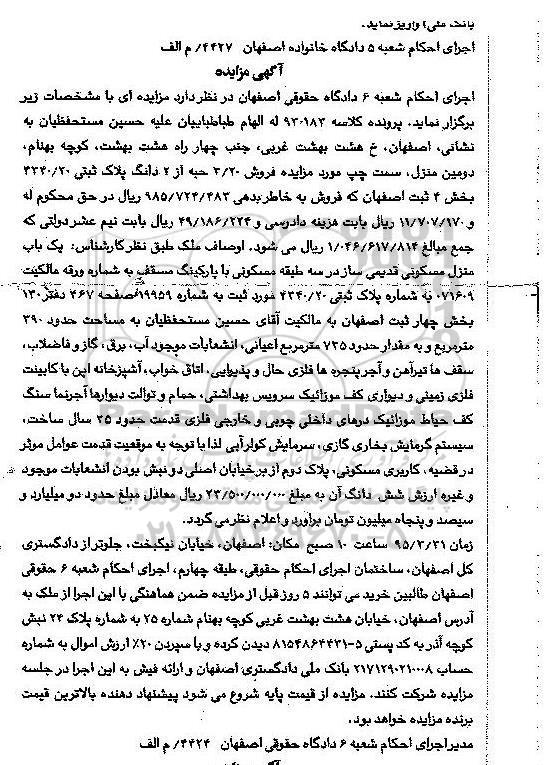 بانک ملی) واریز نماید.
اجرای احکام شعبه ۵ دادگاه خانواده اصفهان ۴۴۲۷/ م الف
آگهی مزایده
اجرای احکام شعبه ۶ دادگاه حقوقی اصفهان در نظر دارد مزایده ای با مشخصات زیر
برگزار نماید. پرونده کلاسه ۹۳۰۱۸۳ له الهام طباطباییان علیه حسین مستحفظیان به
نشانی، اصفهان، خ هشت بهشت غربی، جنب چهار راه هشت بهشت، کوچه بهنام،
دومین منزل، سمت چپ مورد مزایده فروش ۳/۲۰ حبه از ۲ دانگ پلاک ثبتی ۴۳۴۰/۲۰
بخش ۴ ثبت اصفهان که فروش به خاطر بدهی ۹۸۵/۷۲۴/۴۸۳ ریال در حق محکوم له
و ۱۱/۷۰۷/۱۷۰ ریال بابت هزینه دادرسی و ۴۹/۱۸۶/۲۲۴ ریال بابت نیم عشر دولتی که
جمع مبالغ ۱/۰۴۶/۶۱۷/۸۱۴ ریال می شود. اوصاف ملک طبق نظر کارشناس: یک باب
منزل مسکونی قدیمی ساز در سه طبقه مسکونی با پارکینگ مسقف به شماره ورقه مالکیت
۰۷۱۶۰۹ به شماره پلاک ثبتی ۴۳۴۰/۲۰ مورد ثبت به شماره ۱۹۹۵۹ صفحه ۴۶۷ دفتر ۱۳۰
بخش چهار ثبت اصفهان به مالکیت آقای حسین مستحفظیان به مساحت حدود ۳۹۰
مترمربع و به مقدار حدود ۷۳۵ مترمربع اعیانی، انشعابات موجود آب، برق، گاز و فاضلاب،
سقف ها تیرآهن و آجر پنجره ها فلزی حال و پذیرایی، اتاق خواب، آشپزخانه اپن با کابینت
فلزی زمینی و دیواری کف موزائیک سرویس بهداشتی، حمام و توالت دیوارها آجرنما سنگ
کف حیاط موزائیک درهای داخلی چوبی و خارجی فلزی قدمت حدود ۳۵ سال ساخت،
سیستم گرمایش بخاری گازی، سرمایش کولر آبی لذا با توجه به موقعیت قدمت عوامل موثر
در قضیه، کاربری مسکونی، پلاک دوم از بر خیابان اصلی دو نبش بودن انشعابات موجود
و غیره ارزش شش دانگ آن به مبلغ ۲۳/۵۰۰/۰۰۰/۰۰۰ ریال معادل مبلغ حدود دو میلیارد و
سیصد و پنجاه میلیون تومان برآورد و اعلام نظر می گردد.
زمان ۹۵/۳/۳۱ ساعت ۱۰ صبح مکان: اصفهان، خیابان نیکبخت، جلوتر از دادگستری
کل اصفهان، ساختمان اجرای احکام حقوقی، طبقه چهارم، اجرای احکام شعبه ۶ حقوقی
اصفهان طالبین خرید می توانند ۵ روز قبل از مزایده ضمن هماهنگی با این اجرا از ملک به
آدرس اصفهان، خیابان هشت بهشت غربی کوچه بهنام شماره ۲۵ به شماره پلاک ۲۴ نبش
کوچه آذر به کد پستی ۵-۸۱۵۴۸۶۴۴۳۱ دیدن کرده و با سپردن ۲۰٪ ارزش اموال به شماره
حساب ۲۱۷۱۲۹۰۲۱۰۰۰۸ بانک ملی دادگستری اصفهان و ارائه فیش به این اجرا در جلسه
مزایده شرکت کنند. مزایده از قیمت پایه شروع می شود پیشنهاد دهنده بالاترین قیمت
برنده مزایده خواهد بود.
مدیر اجرای احکام شعبه ۶ دادگاه حقوقی اصفهان ۴۴۲۴/ م الف